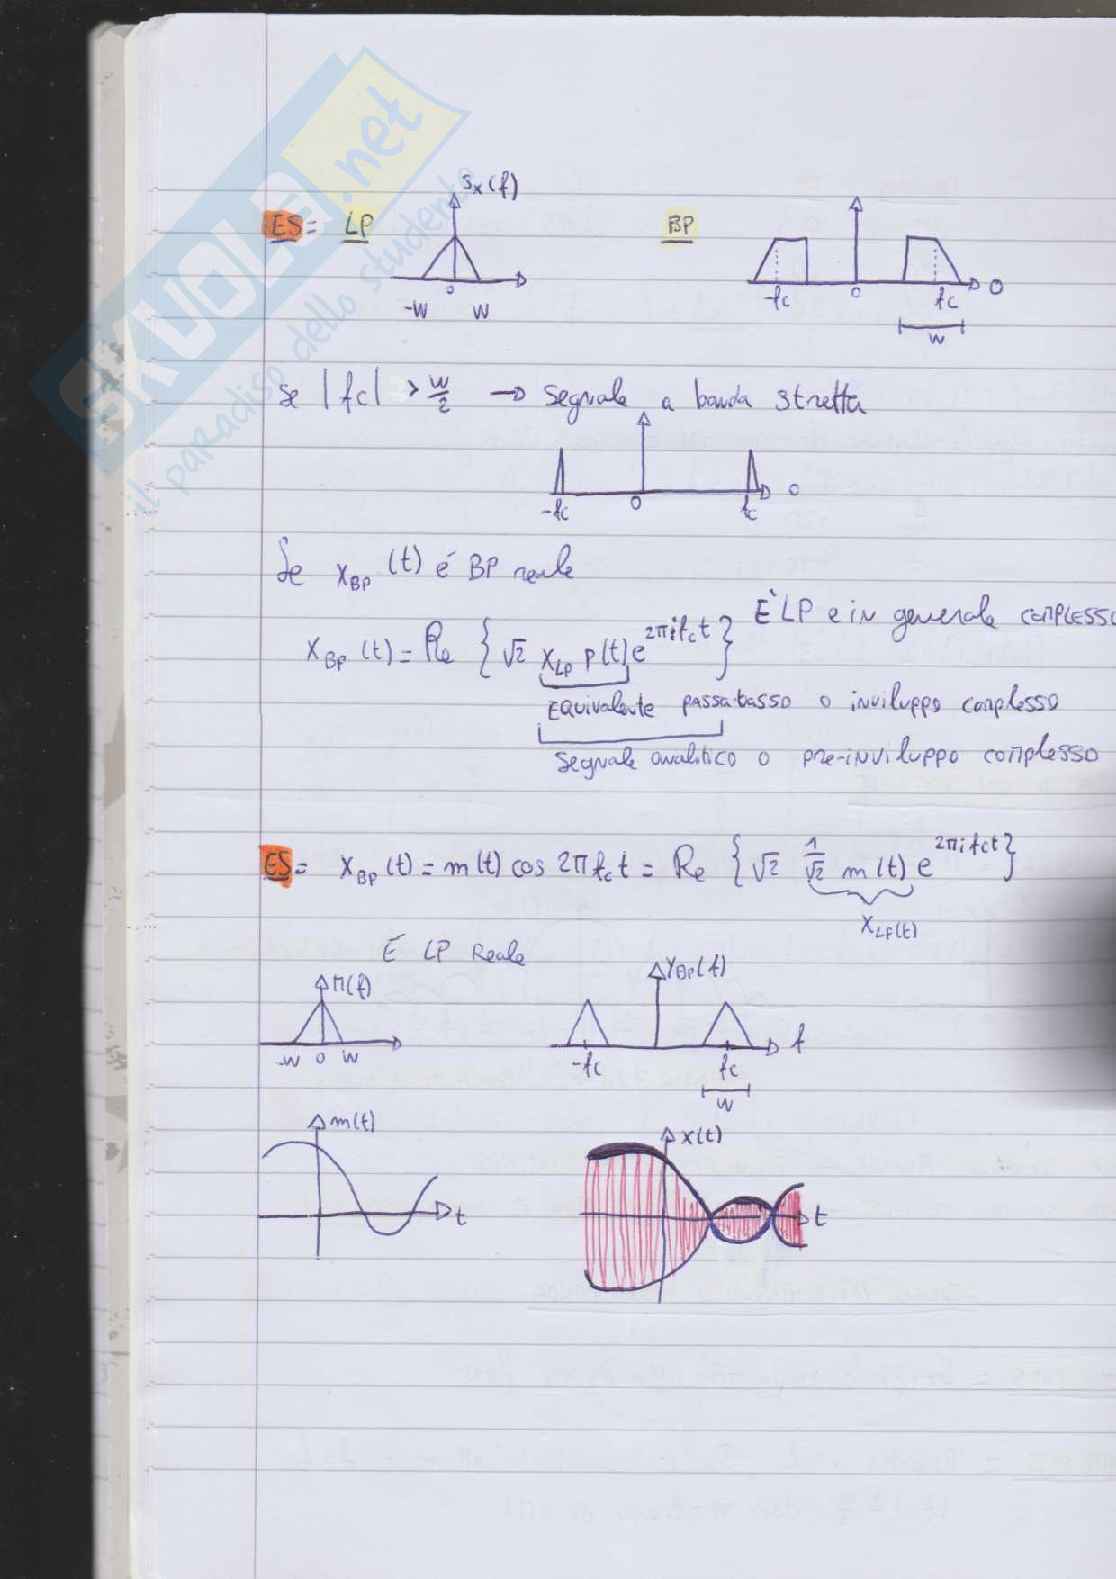 SKUOLA.net
il paradiso dello studente
ES= LP Sx(f) BP
-W 0 W -fc 0 fc 0
W
se |fc| > W/2 → segnale a banda stretta
-fc 0 fc 0
Se xBP (t) é BP reale
È LP e in generale COMPLESSO
xBP (t) = Re { √2 xLP p(t) e^2πifct }
EQUIVALENTE PASSA-BASSO O inviluppo complesso
Segnale analitico o pre-inviluppo complesso
ES= xBP (t) = m(t) cos 2π fc t = Re { √2 1/√2 m(t) e^2πifct }
xLP(t)
É LP Reale
M(f) YBP(f)
-W 0 W -fc fc f
W
m(t) x(t)
t t